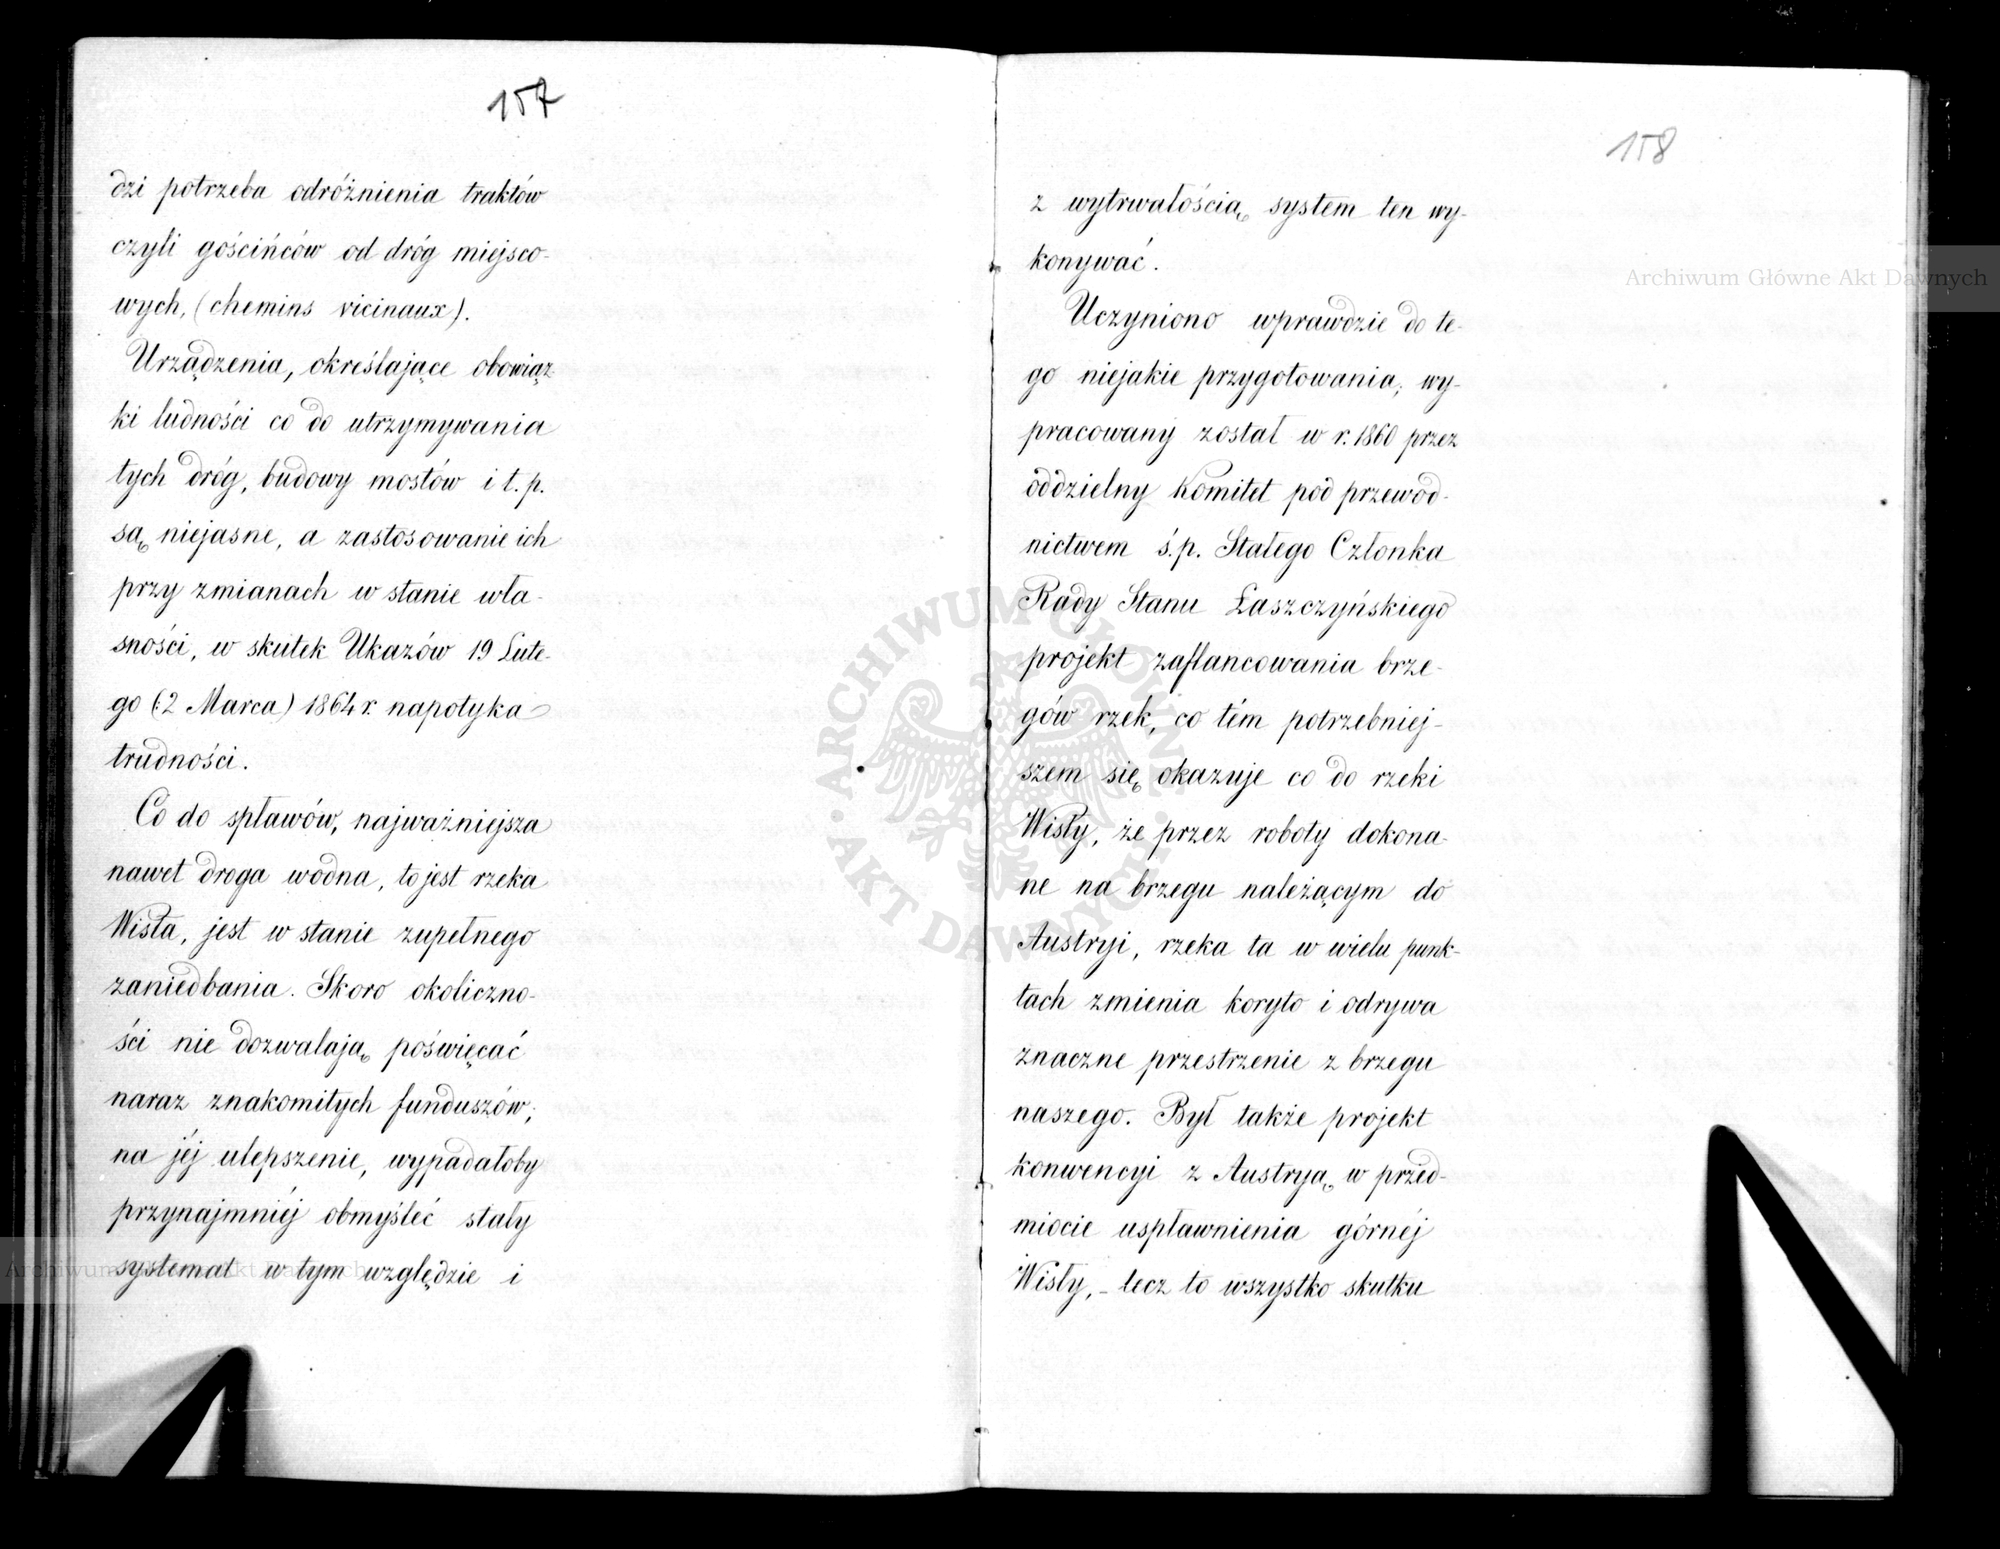 157
dzi potrzeba odróżnienia traktów
czyli gościńców od dróg miejsco-
wych, (chemins vicinaux).
Urządzenia, określające obowiąz
ki ludności co do utrzymywania
tych dróg, budowy mostów i t. p.
są niejasne, a zastosowanie ich
przy zmianach w stanie wła-
sności, w skutek Ukazów 19 Lute-
go (2 Marca) 1864 r. napotyka
trudności.
Co do spławów, najważniejsza
nawet droga wodna, to jest rzeka
Wisła, jest w stanie zupełnego
zaniedbania. Skoro okoliczno-
ści nie dozwalają poświęcać
naraz znakomitych funduszów,
na jéj ulepszenie, wypadałoby
przynajmniéj obmyśleć stały
systemat w tym względzie i
158
z wytrwałością system ten wy-
konywać.
Uczyniono wprawdzie do te-
go niejakie przygotowania; wy-
pracowany został w r. 1860 przez
oddzielny Komitet pod przewod-
nictwem ś.p. Stałego Członka
Rady Stanu Łaszczyńskiego
projekt zaflancowania brze-
gów rzek, co tém potrzebniej-
szem się okazuje co do rzeki
Wisły, że przez roboty dokona-
ne na brzegu należącym do
Austryi, rzeka ta w wielu punk-
tach zmienia koryto i odrywa
znaczne przestrzenie z brzegu
naszego. Był także projekt
konwencyi z Austryą w przed-
miocie uspławnienia górnéj
Wisły, - lecz to wszystko skutku
Archiwum Główne Akt Dawnych
ARCHIWUM GŁÓWNE AKT DAWNYCH
Archiwum Główne Akt Dawnych